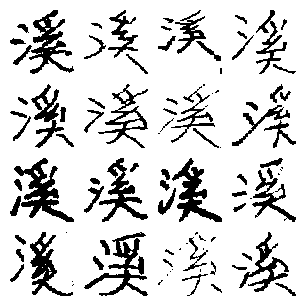 溪溪溪溪
溪溪溪溪
溪溪溪溪
溪溪溪溪